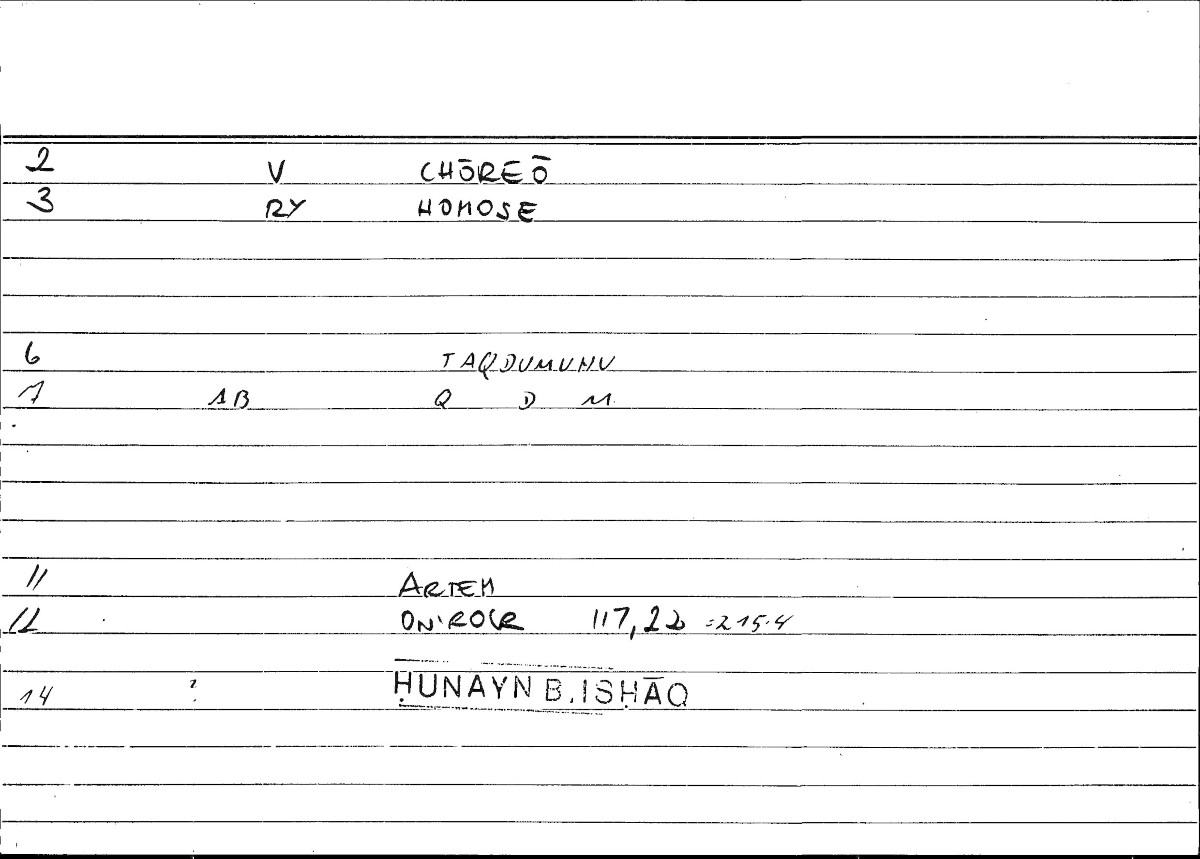 2 V CHŌREŌ
3 RY HOMOSE
6 TAQDUMUHU
7 AB Q D M
11 ARTEM
12 ONIROCR 117,22 =215.4
14 ? ḤUNAYN B. ISḤĀQ